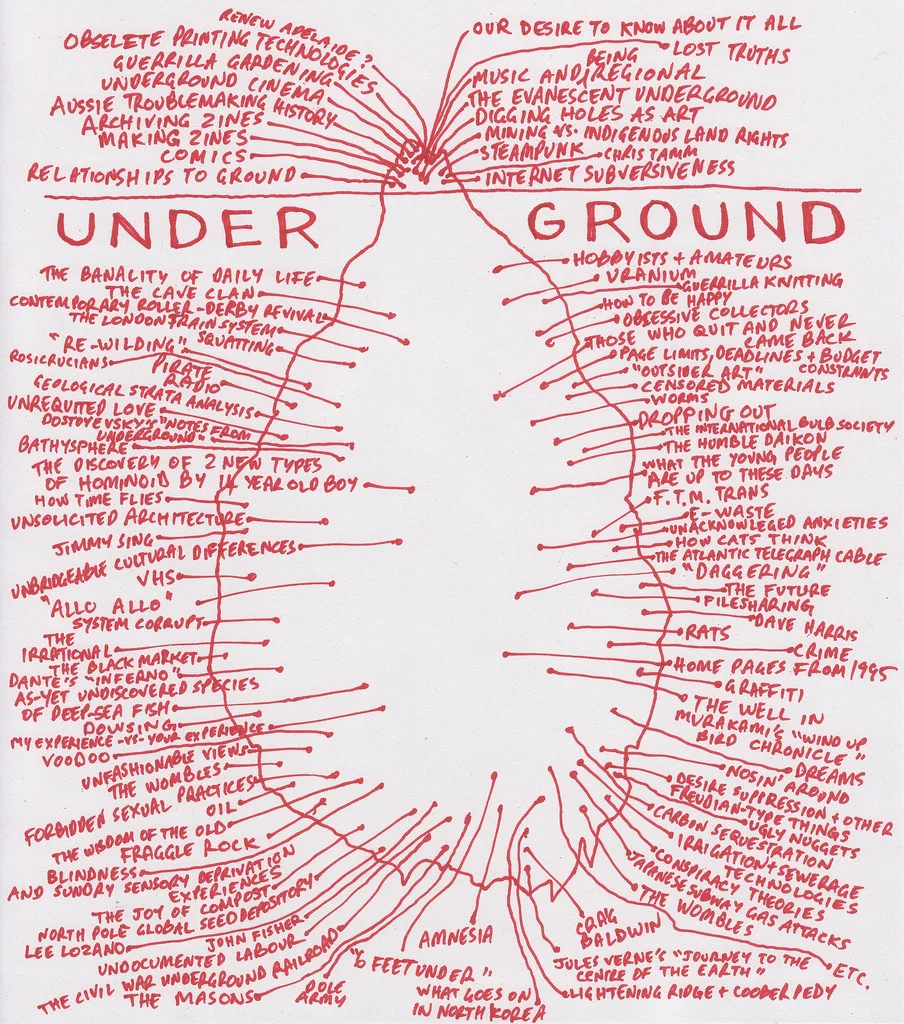 RENEW ADELAIDE?
OBSELETE PRINTING TECHNOLOGIES
GUERRILLA GARDENING
UNDERGROUND CINEMA
AUSSIE TROUBLEMAKING HISTORY
ARCHIVING ZINES
MAKING ZINES
COMICS
RELATIONSHIPS TO GROUND
OUR DESIRE TO KNOW ABOUT IT ALL
LOST TRUTHS
BEING
MUSIC AND/REGIONAL
THE EVANESCENT UNDERGROUND
DIGGING HOLES AS ART
MINING VS. INDIGENOUS LAND RIGHTS
STEAMPUNK
CHRIS TAMM
INTERNET SUBVERSIVENESS
UNDER GROUND
THE BANALITY OF DAILY LIFE
THE CAVE CLAN
CONTEMPORARY ROLLER-DERBY REVIVAL
THE LONDON TRAIN SYSTEM
SQUATTING
"RE-WILDING"
ROSICRUCIANS
PIRATE
RADIO
GEOLOGICAL STRATA ANALYSIS
UNREQUITED LOVE
DOSTOYEVSKY'S "NOTES FROM
UNDERGROUND"
BATHYSPHERE
THE DISCOVERY OF 2 NEW TYPES
OF HOMINOID BY 14 YEAR OLD BOY
HOW TIME FLIES
UNSOLICITED ARCHITECTURE
JIMMY SING
UNBRIDGEABLE CULTURAL DIFFERENCES
VHS
"ALLO ALLO"
SYSTEM CORRUPT
THE
IRRATIONAL
THE BLACK MARKET
DANTE'S "INFERNO"
AS-YET UNDISCOVERED SPECIES
OF DEEP-SEA FISH
DOWSING
MY EXPERIENCE -VS- YOUR EXPERIENCE
VOODOO
UNFASHIONABLE VIEWS
THE WOMBLES
FORBIDDEN SEXUAL PRACTICES
OIL
THE WISDOM OF THE OLD
FRAGGLE ROCK
BLINDNESS
AND SUNDRY SENSORY DEPRIVATION
EXPERIENCES
THE JOY OF COMPOST
NORTH POLE GLOBAL SEED DEPOSITORY
LEE LOZANO
JOHN FISHER
UNDOCUMENTED LABOUR
THE CIVIL WAR UNDERGROUND RAILROAD
THE MASONS
DOLE
ARMY
"6 FEET UNDER"
AMNESIA
WHAT GOES ON
IN NORTH KOREA
HOBBYISTS + AMATEURS
URANIUM
GUERRILLA KNITTING
HOW TO BE HAPPY
OBSESSIVE COLLECTORS
THOSE WHO QUIT AND NEVER
CAME BACK
PAGE LIMITS, DEADLINES + BUDGET
CONSTRAINTS
"OUTSIDER ART"
CENSORED MATERIALS
WORMS
DROPPING OUT
THE INTERNATIONAL BULB SOCIETY
THE HUMBLE DAIKON
WHAT THE YOUNG PEOPLE
ARE UP TO THESE DAYS
F.T.M. TRANS
E-WASTE
UNACKNOWLEGED ANXIETIES
HOW CATS THINK
THE ATLANTIC TELEGRAPH CABLE
"DAGGERING"
THE FUTURE
FILESHARING
DAVE HARRIS
RATS
CRIME
HOME PAGES FROM 1995
GRAFFITI
THE WELL IN
MURAKAMI'S "WIND UP
BIRD CHRONICLE"
DREAMS
NOSIN' AROUND
DESIRE SUPPRESSION + OTHER
FREUDIAN-TYPE THINGS
UGLY NUGGETS
CARBON SEQUESTRATION
IRRIGATION + SEWERAGE
TECHNOLOGIES
CONSPIRACY THEORIES
JAPANESE SUBWAY GAS ATTACKS
THE WOMBLES
ETC.
CRAIG
BALDWIN
JULES VERNE'S "JOURNEY TO THE
CENTRE OF THE EARTH"
LIGHTENING RIDGE + COOBER PEDY